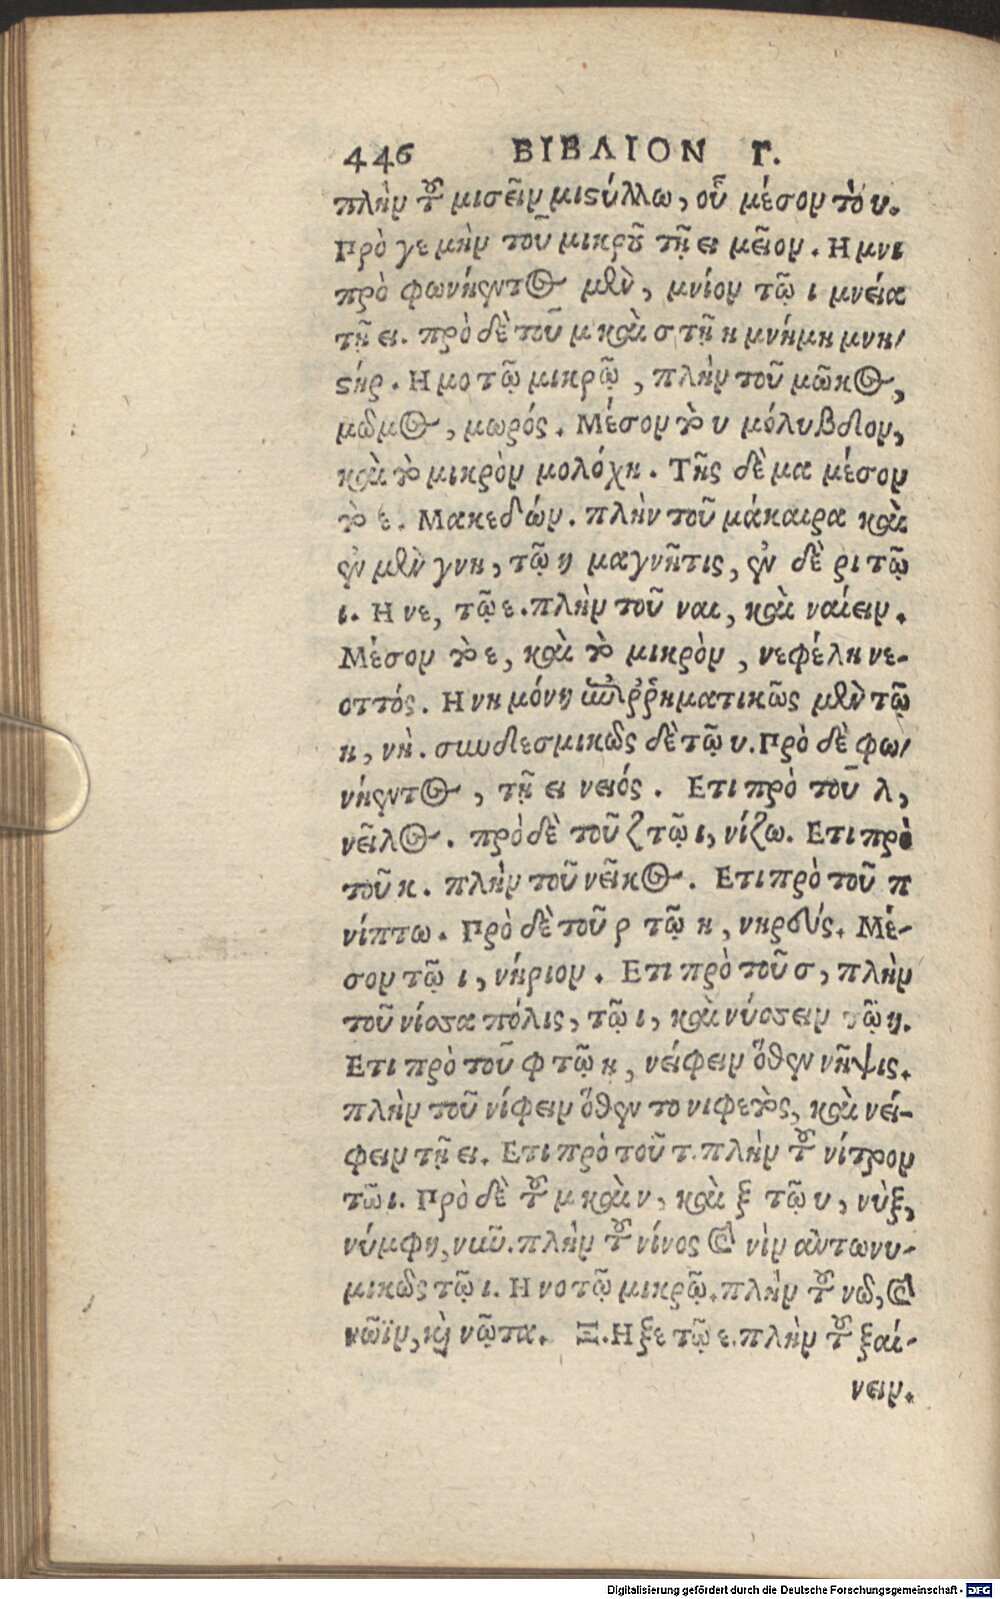 446 ΒΙΒΛΙΟΝ Γ.
πλὴν τοῦ μισεῖν μιστύλλω, οὗ μέσον τὸ υ.
Πρὸ γε μὴν τοῦ μικροῦ τῇ ει μεῖον. Η μνι
πρὸ φωνήεντος μὲν, μνίον τῷ ι μνεία
τῇ ει. πρὸ δὲ τοῦ μ καὶ σ τῇ η μνήμη μνη/
στήρ. Η μο τῷ μικρῷ, πλὴν τοῦ μῶκος,
μῶμος, μωρός. Μέσον τὸ υ μόλυβδιον,
καὶ τὸ μικρὸν μολόχη. Τῆς δὲ μα μέσον
τὸ ε. Μακεδών. πλὴν τοῦ μάκαιρα καὶ
ἐν μὲν γνη, τῷ η μαγνῆτις, ἐν δὲ ρι τῷ
ι. Η νε, τῷ ε. πλὴν τοῦ ναι, καὶ ναίειν.
Μέσον τὸ ε, καὶ τὸ μικρὸν, νεφέλη νε-
οττός. Η νη μόνη ἐπιῤῥηματικῶς μὲν τῷ
η, νὴ. συνδεσμικῶς δὲ τῷ υ. Πρὸ δὲ φω/
νήεντος, τῇ ει νειός. Ετι πρὸ τοῦ λ,
νεῖλος. πρὸ δὲ τοῦ ζ τῷ ι, νίζω. Ετι πρὸ
τοῦ κ. πλὴν τοῦ νεῖκος. Ετι πρὸ τοῦ π
νίπτω. Πρὸ δὲ τοῦ ρ τῷ η, νηρεύς. Μέ-
σον τῷ ι, νήριον. Ετι πρὸ τοῦ σ, πλὴν
τοῦ νίσσα πόλις, τῷ ι, καὶ νύσσειν τῷ υ.
Ετι πρὸ τοῦ φ τῷ η, νείφειν ὅθεν νῆψις.
πλὴν τοῦ νίφειν ὅθεν το νιφετὸς, καὶ νεί-
φειν τῇ ει. Ετι πρὸ τοῦ τ. πλὴν τοῦ νίτρον
τῶι. Πρὸ δὲ τοῦ μ καὶ ν, καὶ ξ τῷ υ, νὺξ,
νύμφη, νῦν. πλὴν τοῦ νίνος καὶ νὶν αντωνυ-
μικῶς τῷ ι. Η νο τῷ μικρῷ. πλὴν τοῦ νῶ, καὶ
νῶϊν, καὶ νῶτα. Ξ. Η ξε τῷ ε. πλὴν τοῦ ξαί-
νειν.
Digitalisierung gefördert durch die Deutsche Forschungsgemeinschaft - DFG